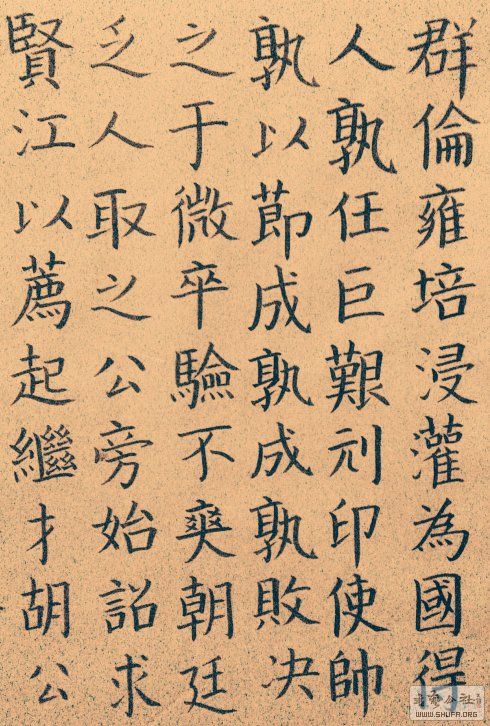 群倫雍培浸灌為國得
人孰任巨艱刓印使帥
孰以節成孰成孰敗决
之于微卒驗不爽朝廷
乏人取之公旁始詔求
賢江以薦起繼才胡公
WWW.SHUFA.ORG